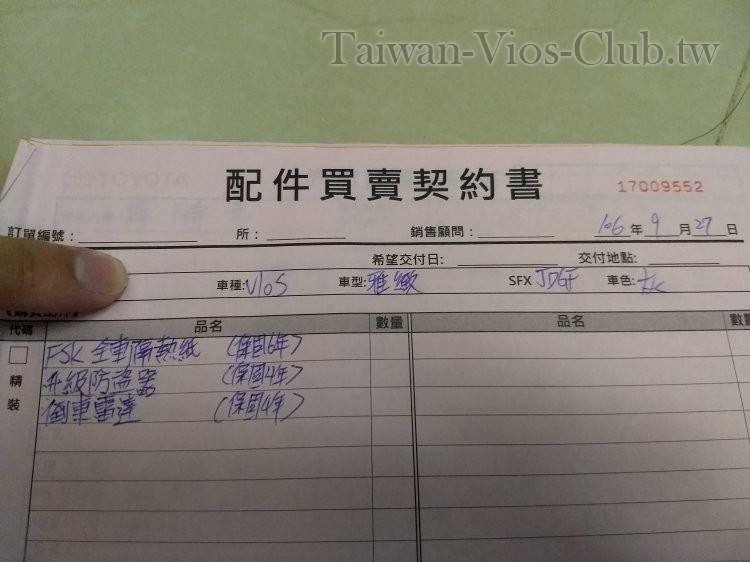 Taiwan-Vios-Club.tw
配件買賣契約書
17009552
訂單編號： 所： 銷售顧問： 106年 9月27日
希望交付日： 交付地點：
車種：VIOS 車型：雅緻 SFX JDGF 車色：
代碼 品名 數量 品名
精裝
FSK 全車隔熱紙 (保固6年)
升級防盜器 (保固4年)
倒車雷達 (保固4年)